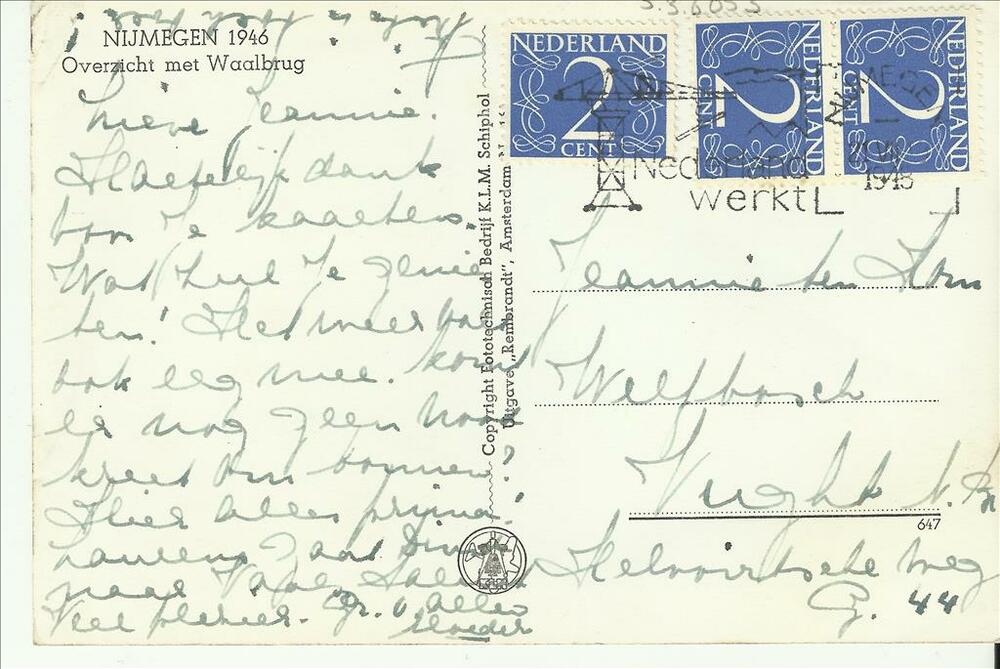 NIJMEGEN 1946
Overzicht met Waalbrug
Lieve Jeannie.
Hartelijk dank
voor je kaarten.
Wat zul je genie
ten! Het weer valt
ook erg mee. komt
er nog geen
om bomen?
Hier alles prima.
gaat Din
naar
Veel plezier. Gr. v. allen
Moeder
Copyright Fototechnisch Bedrijf K.L.M. Schiphol
Uitgave „Rembrandt”, Amsterdam
NEDERLAND
2
CENT
NEDERLAND
2
CENT
NEDERLAND
2
CENT
Nederland
werkt
NIJMEGEN
1948
Jeannie ten Horn
Welfbosch
Vught N.Br
647
Helvoirtsche weg
44